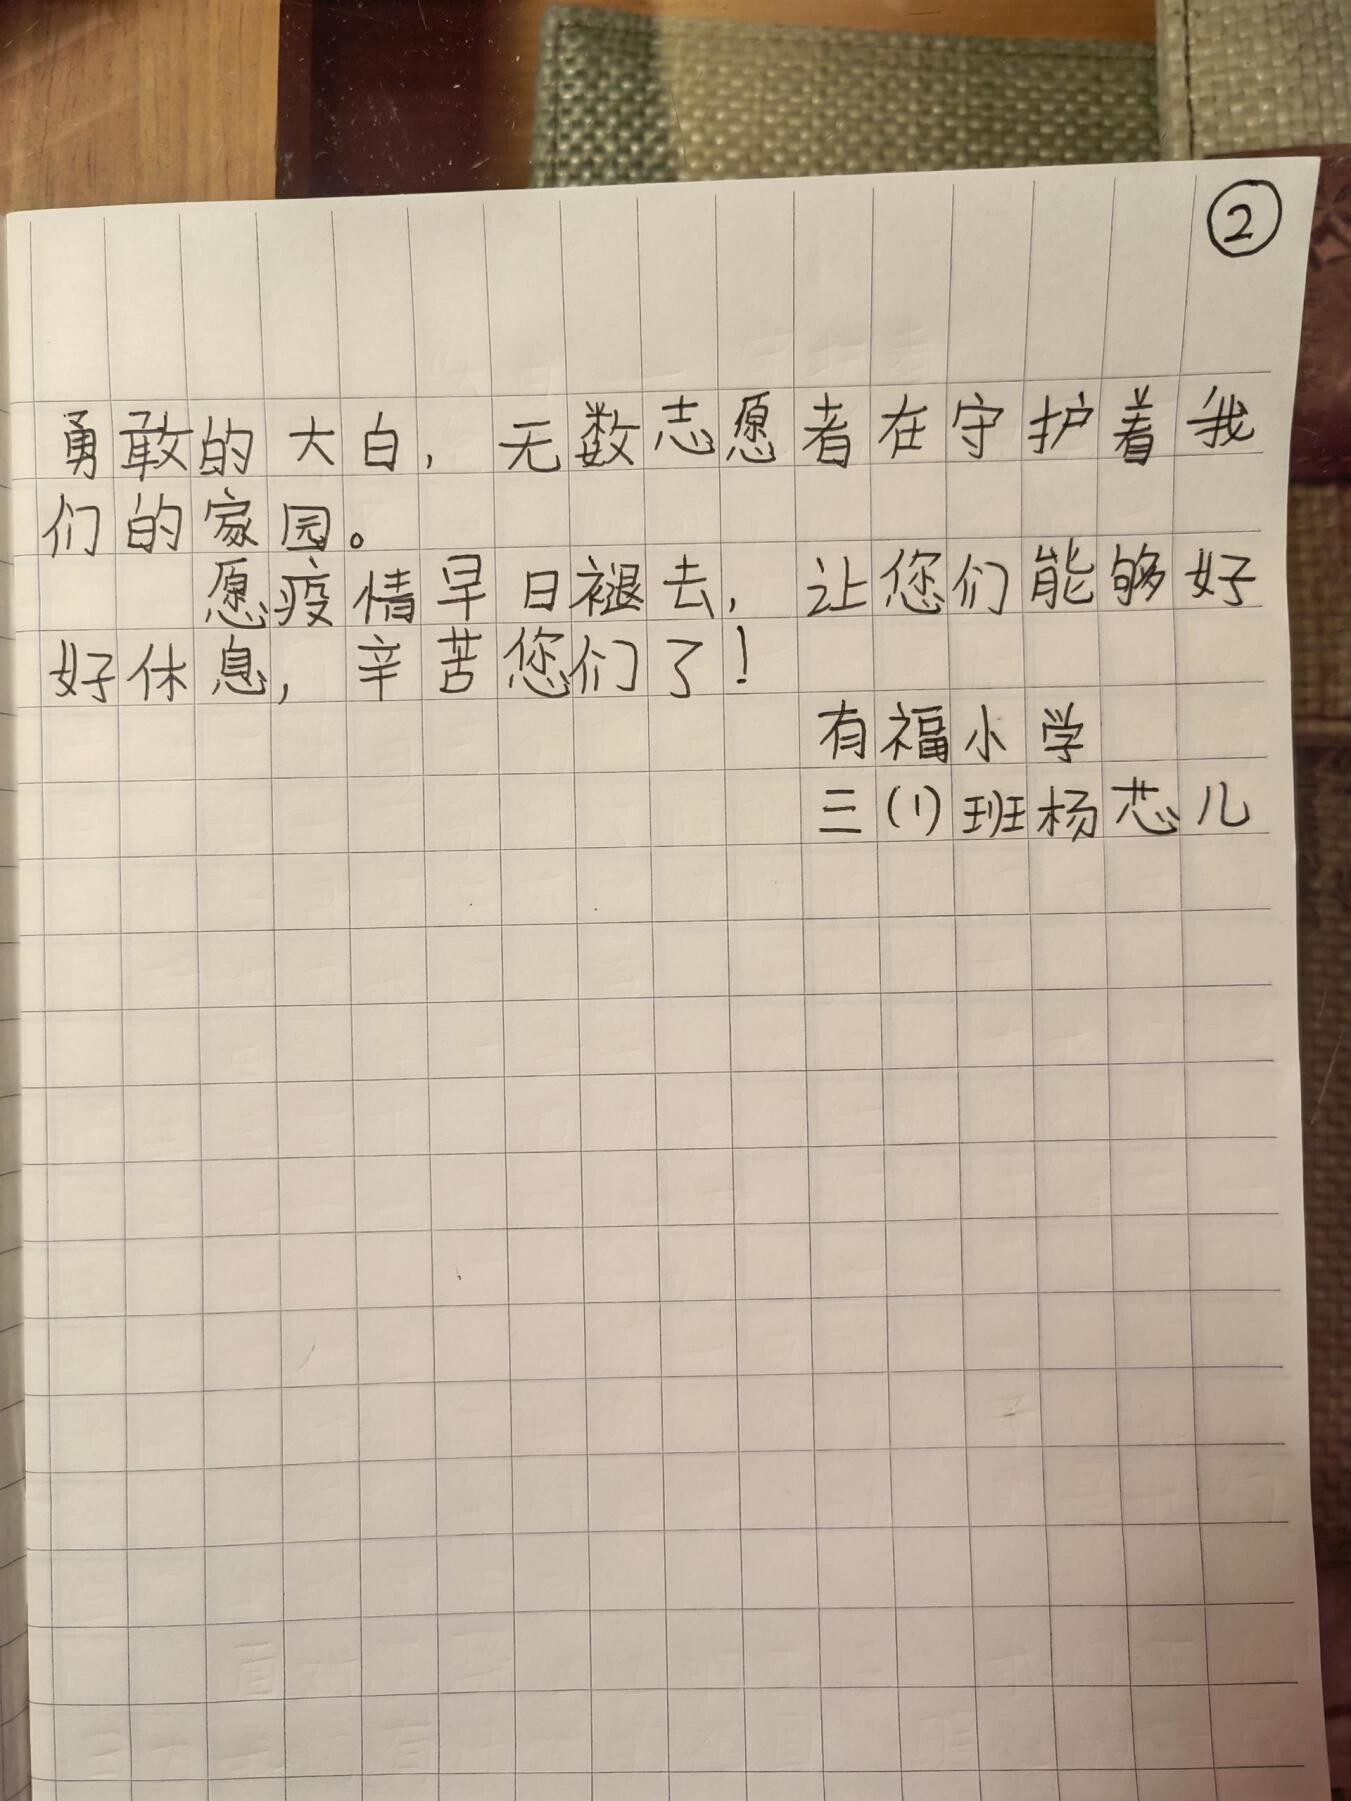 ②
勇敢的大白，无数志愿者在守护着我
们的家园。
愿疫情早日褪去，让您们能够好
好休息，辛苦您们了！
有福小学
三(1)班杨芯儿